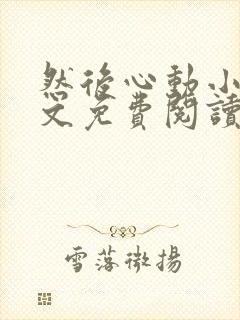 然後心動小
文免費閱讀
雪落微揚